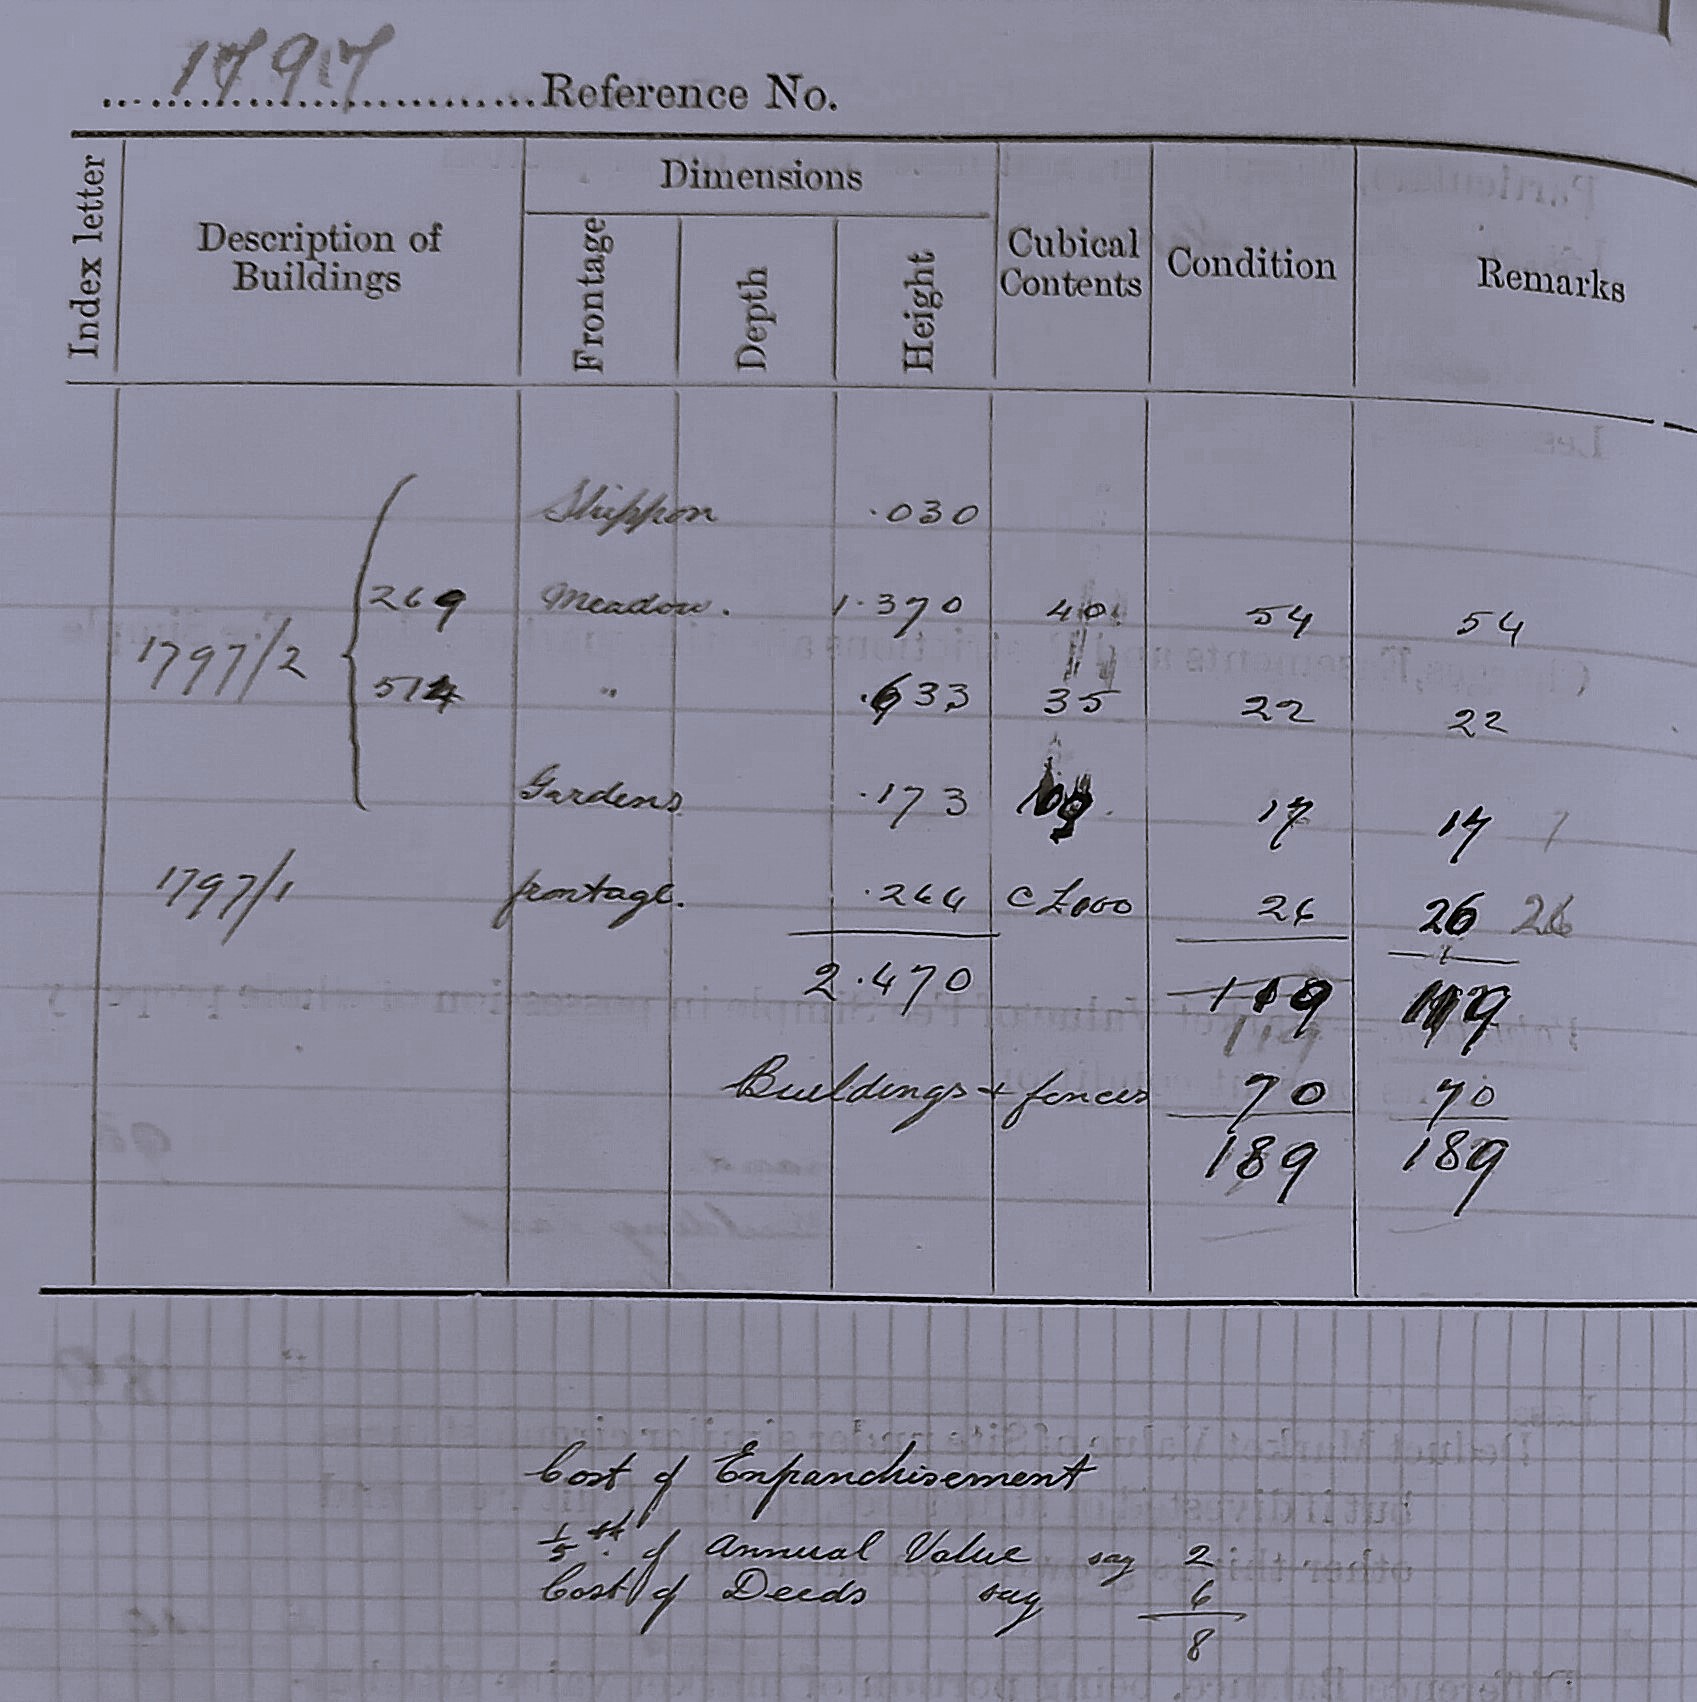 1797 Reference No.
Index letter
Description of Buildings
Dimensions
Frontage
Depth
Height
Cubical Contents
Condition
Remarks
Shippon .030
269 Meadow. 1.370 40 54 54
1797/2
514 " .633 35 22 22
Gardens .173 17 17 7
1797/1 frontage. .264 c £100 26 26 26
2.470 119 119
119
Buildings + fences 70 70
189 189
Cost of Enfranchisement
1/5 th of Annual Value say 2
Cost of Deeds say 6
8